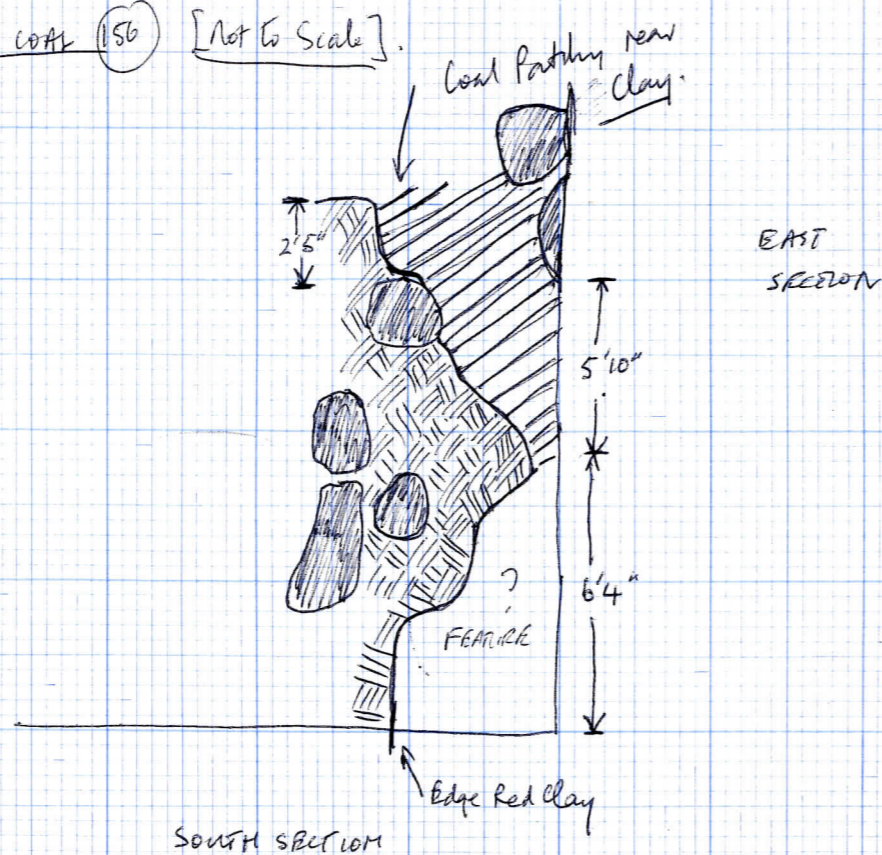 COAL 156 [Not to Scale].
Coal Patchy near
Clay.
2'5"
EAST
SECTION
5'10"
6'4"
?
FEATURE
Edge Red Clay
SOUTH SECTION